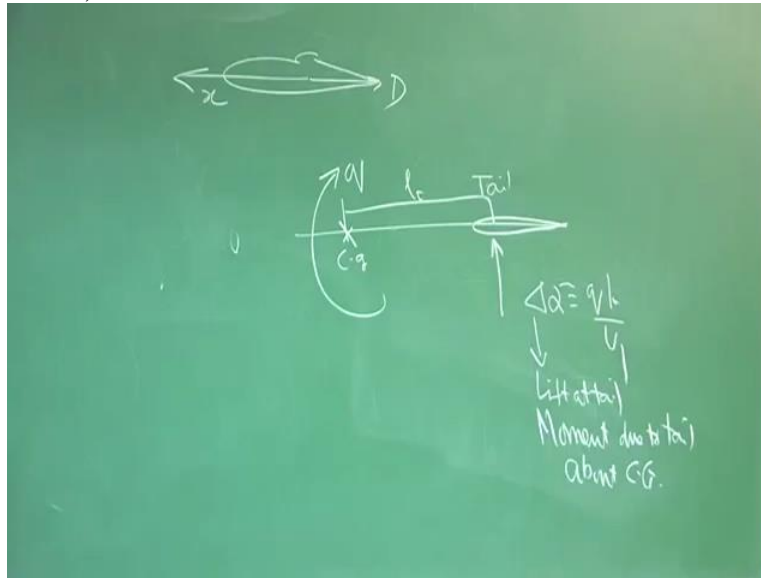 x D
q lt Tail
C.g
Δα = qlt
U
Lift at tail
Moment due to tail
about C.G.